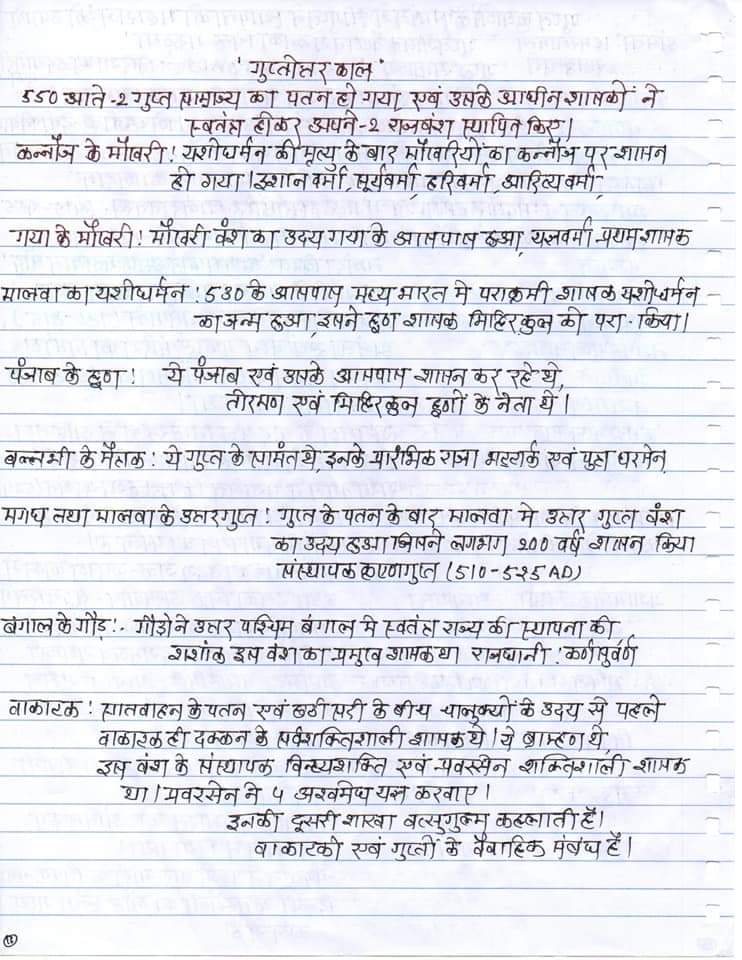 ' गुप्तोत्तर काल '
550 आते-2 गुप्त साम्राज्य का पतन हो गया एवं उसके आधीन शासकों ने
स्वतंत्र होकर अपने-2 राजवंश स्थापित किए।
कन्नौज के मौखरी ! यशोधर्मन की मृत्यु के बाद मौखरियों का कन्नौज पर शासन
हो गया। इशानवर्मा, सूर्यवर्मा, हरिवर्मा, आदित्यवर्मा,
गया के मौखरी ! मौखरी वंश का उदय गया के आसपास हुआ, यज्ञवर्मा-प्रथम शासक
मालवा का यशोधर्मन : 530 के आसपास मध्य भारत में पराक्रमी शासक यशोधर्मन
का जन्म हुआ, इसने हुण शासक मिहिरकुल को परा. किया।
पंजाब के हुण ! ये पंजाब एवं उसके आसपास शासन कर रहे थे,
तोरमाण एवं मिहिरकुल हुणों के नेता थे।
बल्लभी के मैत्रक : ये गुप्त के सामंत थे, इनके प्रारंभिक राजा भट्टार्क एवं पुत्र धरसेन
मगध तथा मालवा के उत्तरगुप्त ! गुप्त के पतन के बाद मालवा में उत्तर गुप्त वंश
का उदय हुआ जिसने लगभग 200 वर्ष शासन किया
संस्थापक कृष्णगुप्त (510-525 AD)
बंगाल के गौड़ !- गौड़ो ने उत्तर पश्चिम बंगाल में स्वतंत्र राज्य की स्थापना की,
शशांक इस वंश का प्रमुख शासक था राजधानी : कर्णसुवर्ण
वाकाटक ! सातवाहन के पतन एवं छठी सदी के बीच चालुक्यों के उदय से पहले
वाकाटक ही दक्कन के सर्वशक्तिशाली शासक थे। ये ब्राम्हण थे
इस वंश के संस्थापक विन्ध्यशक्ति एवं प्रवरसेन शक्तिशाली शासक
था। प्रवरसेन ने 4 अश्वमेध यज्ञ करवाए।
इनकी दूसरी शाखा वत्सगुल्म कहलाती है।
वाकाटकों एवं गुप्तों के वैवाहिक संबंध है।